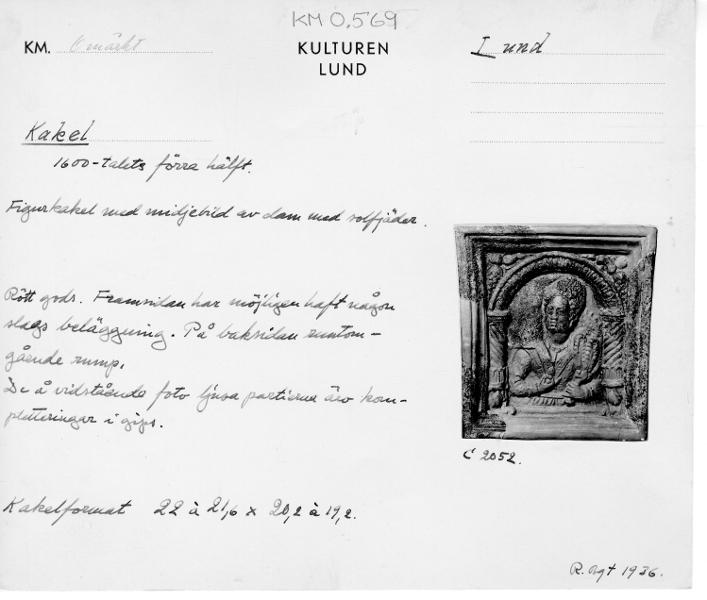 KM 0.569
KM. Omärkt
KULTUREN
LUND
Lund
Kakel
1600-talets förra hälft.
Figurkakel med midjebild av dam med solfjäder.
Rött gods. Framsidan har möjligen haft någon
slags beläggning. På baksidan runtom-
gående rump.
De å vidstående foto ljusa partierna äro kom-
pletteringar i gips.
C 2052.
Kakelformat 22 à 21,6 x 20,2 à 19,2.
R. 1936.